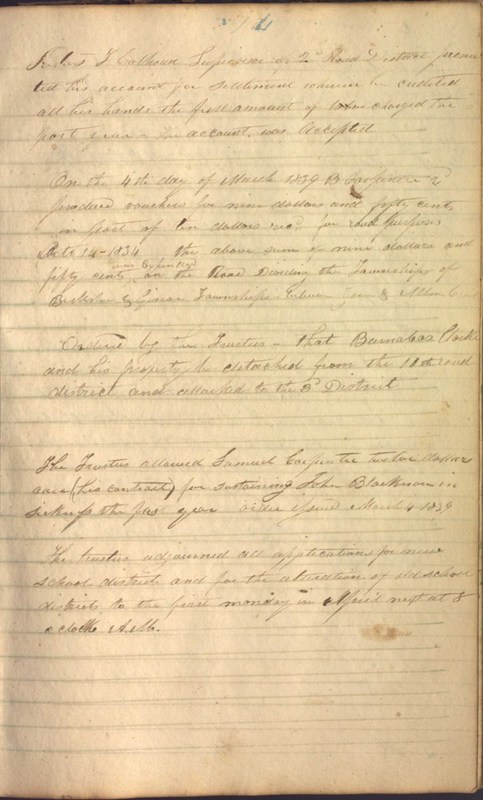 74
J Calhoun Supervisor of 2d Road District presen
ted his account for settlement wherein he credited
all his hands the full amount of labor charged the
past year & the account was accepted
On the 4th day of March 1839 B 2d
produced vouchers for nine dollars and fifty cents
in part of ten dollars for road purposes
Oct 14 - 1834 the above sum of nine dollars and
fifty cents was expended on the Road Dividing the Townships of
Townships between &
Ordered by the Trustees - that Barnabas
and his property be detached from the 11th road
district and attached to the 3d District
The Trustees allowed Samuel Carpenter twelve dollars
(his contract) for sustaining John Blackman in
sickness the past year order issued March 4 1839
The trustees adjourned all applications for new
school districts and for the alteration of old school
districts to the first monday in April next at 8
o clock A.M.